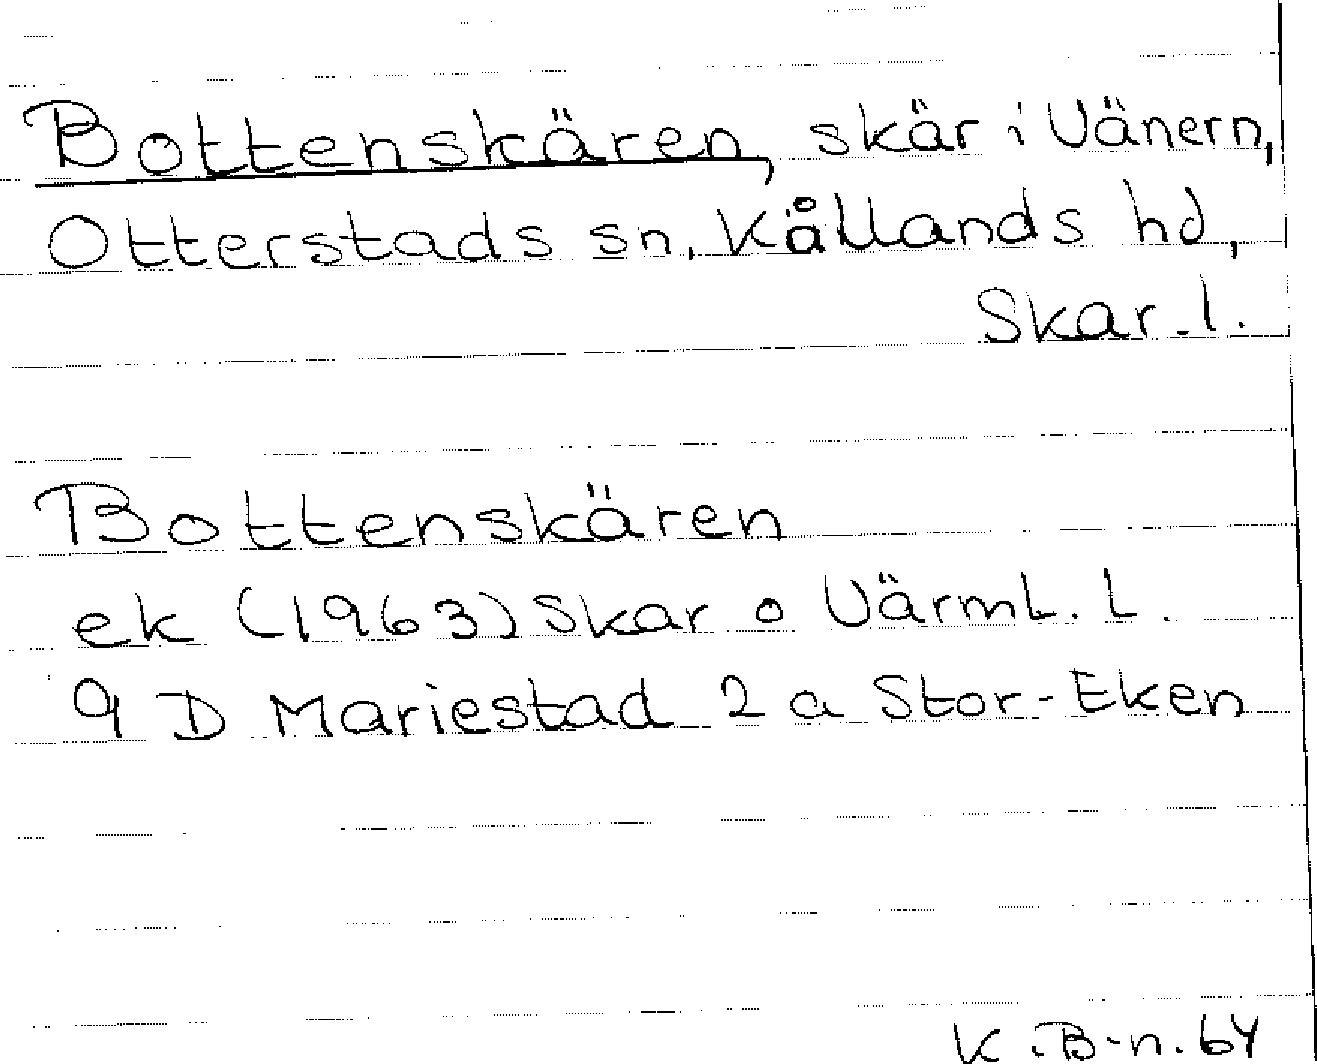 Bottenskären, skär i Vänern,
Otterstads sn, Kållands hd,
Skar. l.
Bottenskären
ek (1963) Skar o Värml. L.
9 D Mariestad 2 a Stor-Eken
K. B-n. 64